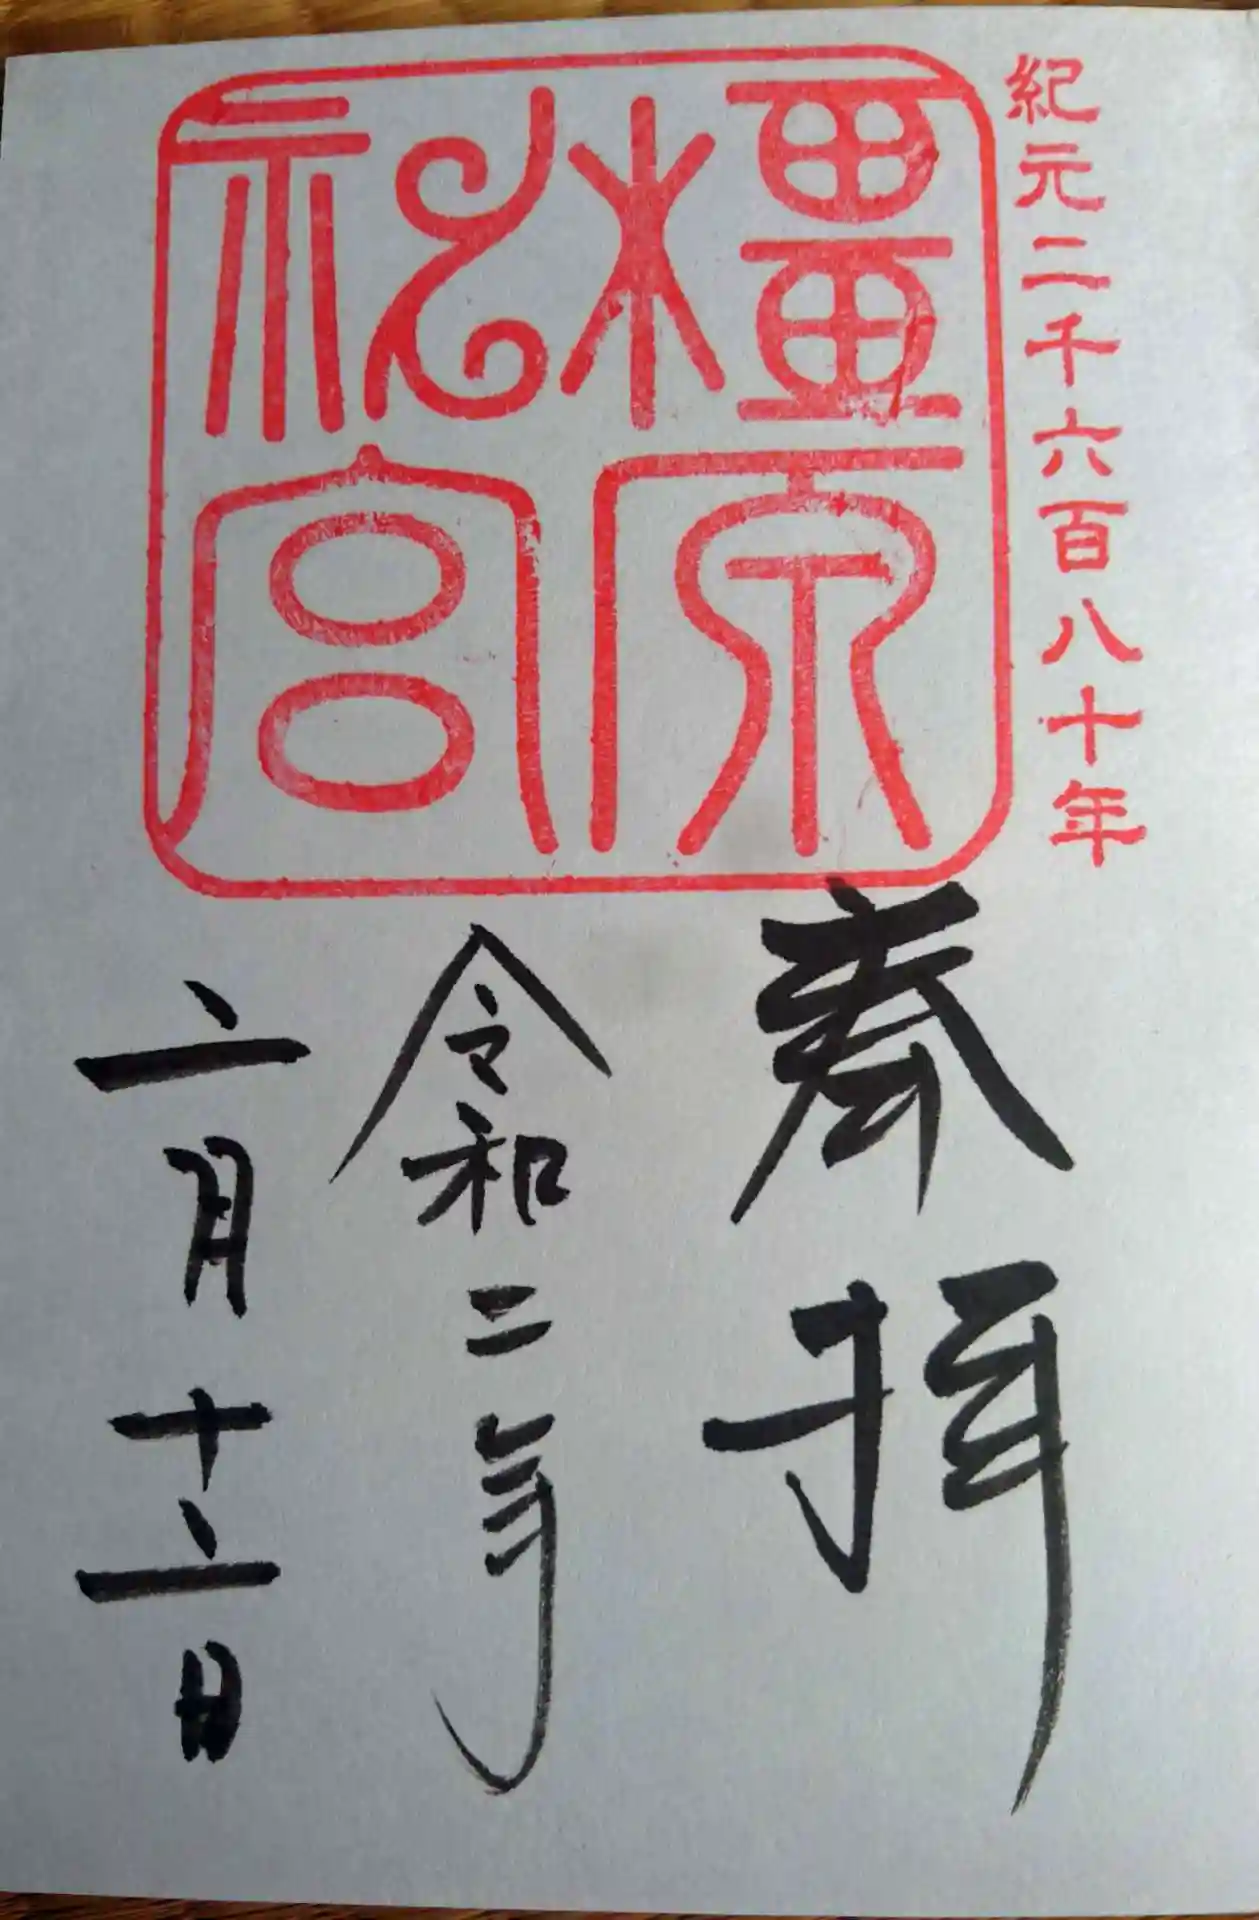 紀元二千六百八十年
橿原
神宮
奉拝
令和二年
二月十二日